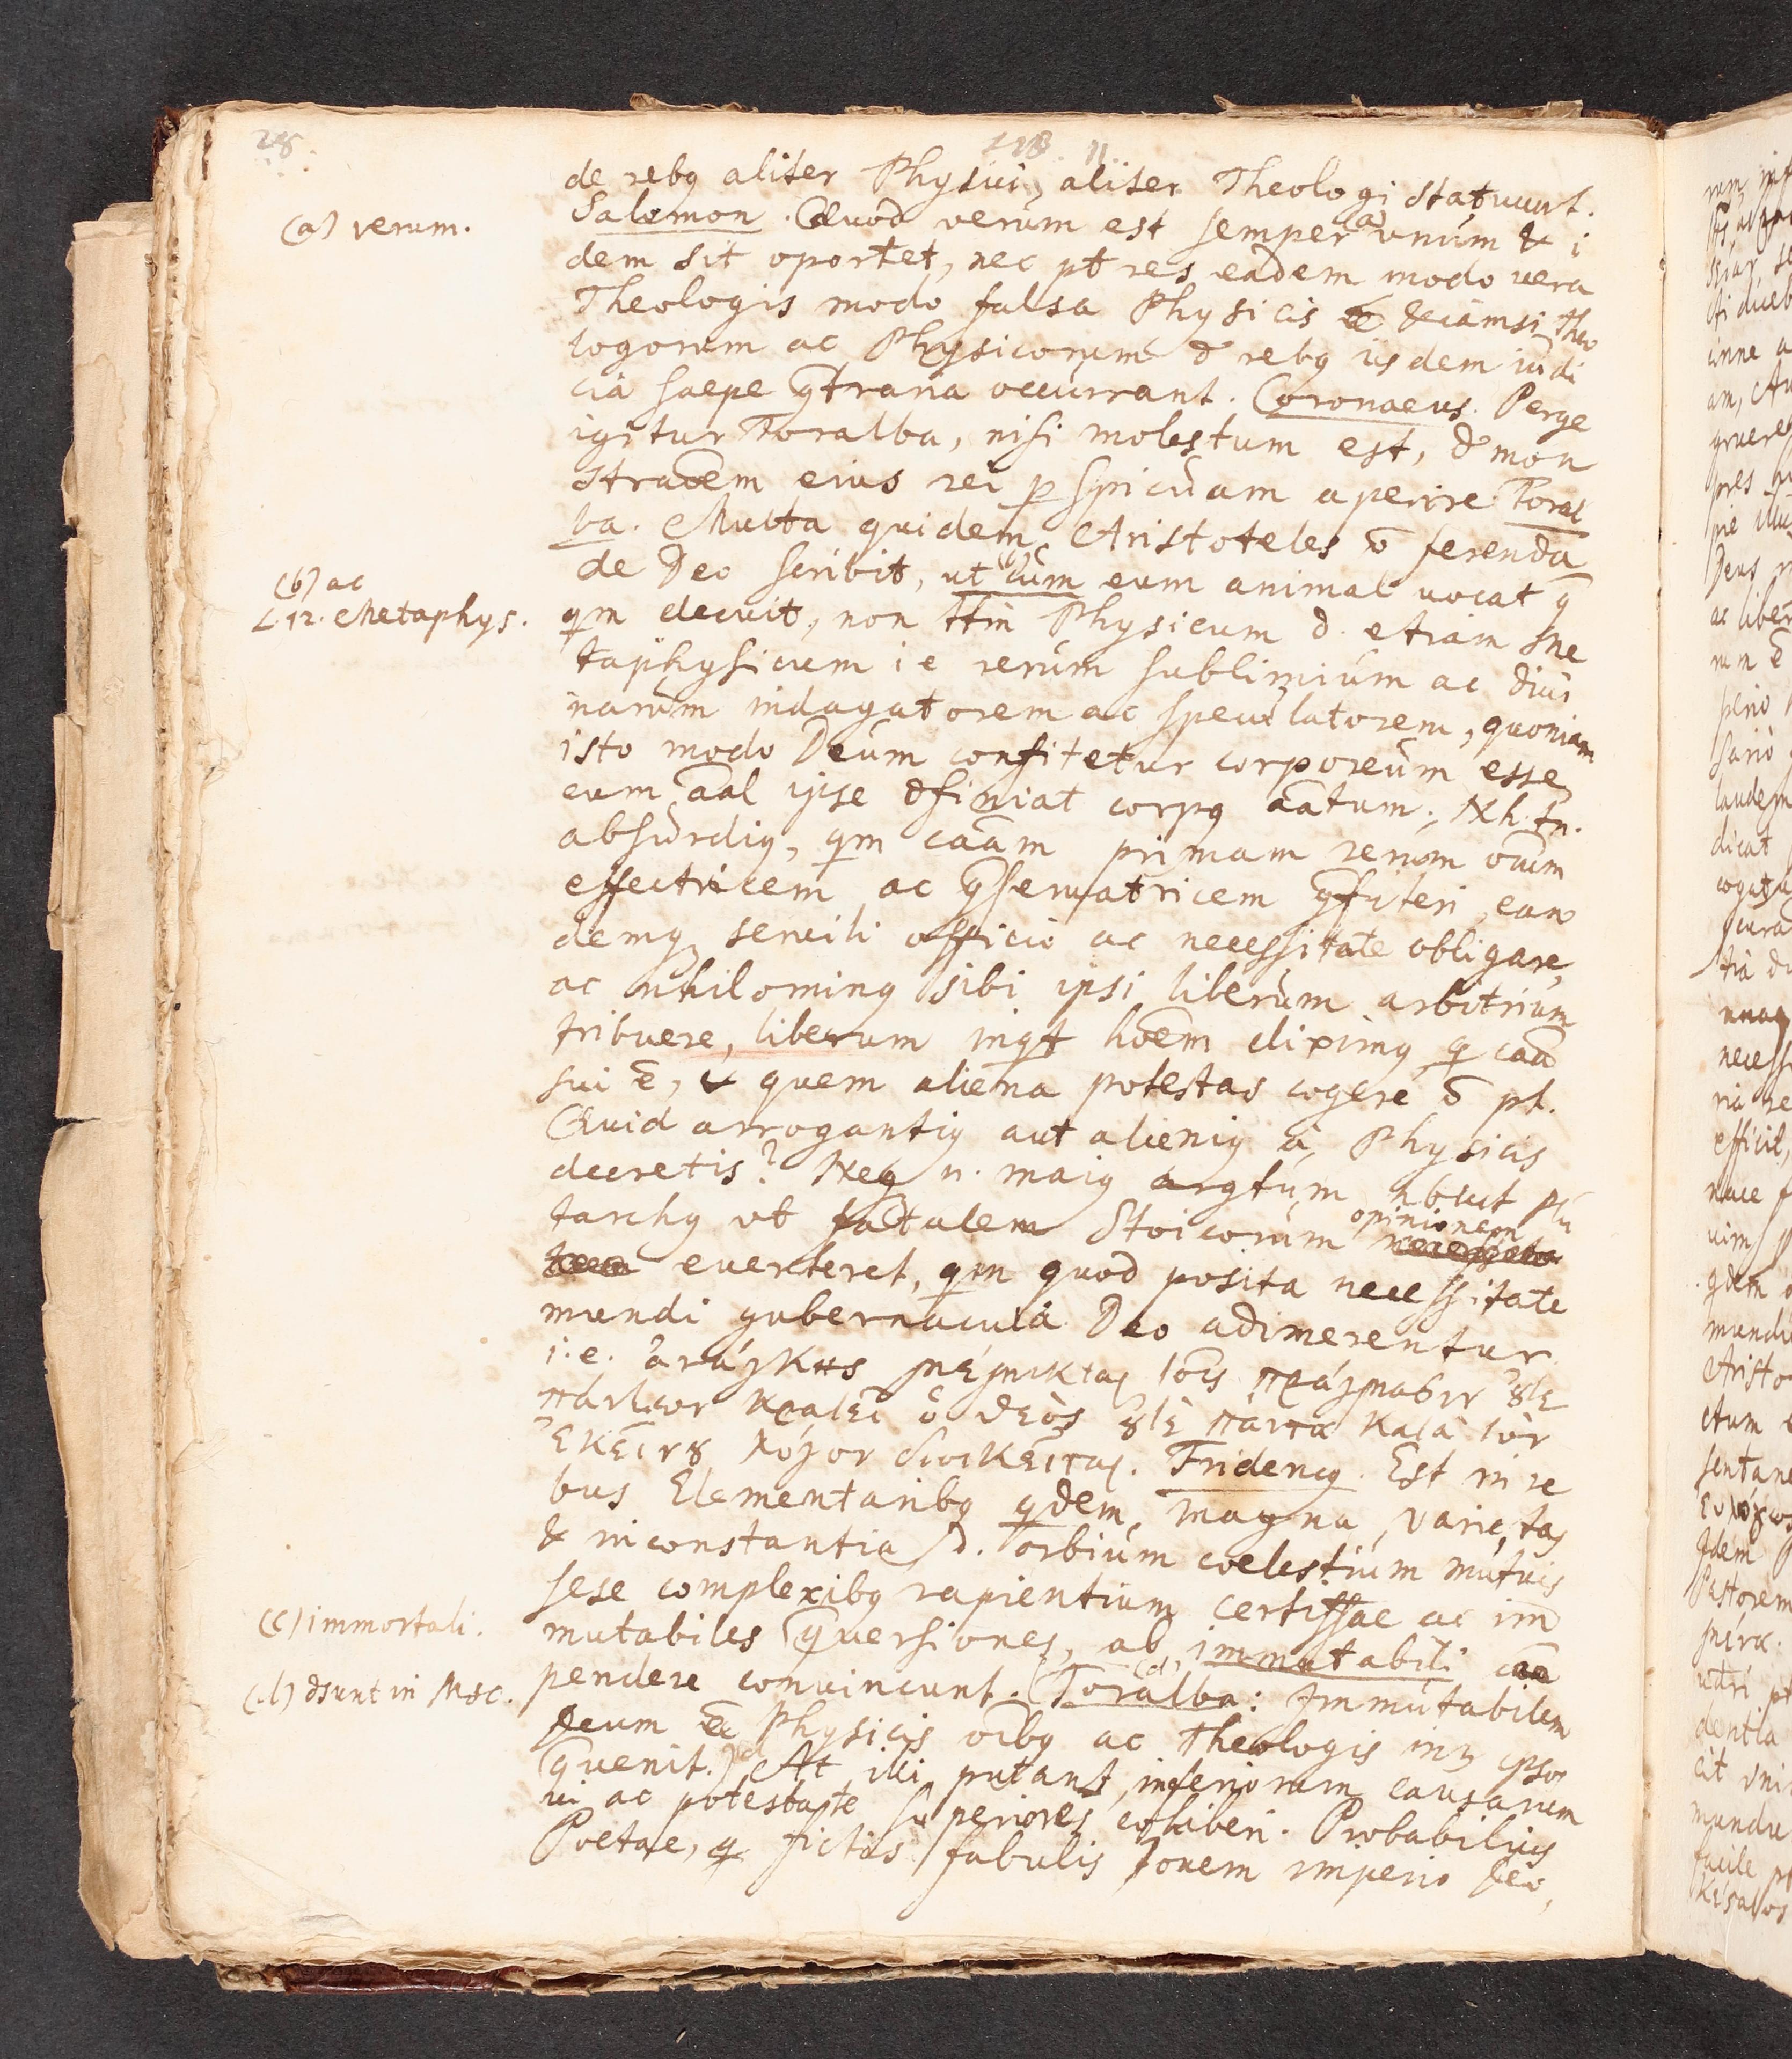 28
118. 11.
de rebq aliter Physici, aliter Theologi statuunt.
(a) verum.
Salomon. Quod verum est semper (a) vnum & i
dem sit oportet, nec pt res eadem modo vera
Theologis modo falsa Physicis & etiamsi Theo
logorum ac Physicorum d rebq iisdem iudi
cia saepe qtraria occurrant. Coronaeus. Perge
igitur Toralba, nisi molestum est, d mon
straōem eius rei pspicuam aperire Toral
ba. Multa quidem Aristoteles ō ferenda
(b) ac
de Deo scribit, ut (b) cum eum animal vocat q
L. 12. Metaphys.
qm decuit, non ttm Physicum d. etiam Me
taphysicum i e rerum sublimium ac diui
narum indagatorem ac speculatorem, quoniam
isto modo Deum confitetur corporeum esse,
eum āal ipse dfiniat corpq āatum. Nh. tn.
absurdiq, qm caām primam rerum oīum
effectricem ac qseruatricem qfiteri, ean
demq seruili officio ac necessitate obligare,
ac nhilominq sibi ipsi liberum arbitrium
tribuere, liberum inqt hoēm diximq q caā
sui ē, & quem aliena potestas cogere ō pt.
Quid arrogantiq aut alieniq à Physicis
decretis? Neq n. maiq argtum hbuit Plu
tarchq vt fatalem Stoicorum opinionem
euerteret, qm quod posita necessitate
mundi gubernacula Deo adimerentur
i. e. ἀνάγκης μέμικται τοῖς πράγμασιν ȣ̓δὲ
πάντων κρατεῖ ὁ θεὸς ȣ̓δὲ πάντα κατὰ τὸν
ἐκείνȣ λόγον διοικεῖται. Fridericq. Est in re
bus Elementaribq qdem, magna varietas
& inconstantia d. orbium coelestium mutuis
sese complexibq rapientium certissae ac im
(c) immortali.
mutabiles qversiones, ab immutabili caa
(d) dsunt in Msc.
pendere conuincunt. (d) (Toralba: Immutabilem
Deum ēe Physicis oībq ac Theologis int ipsos
quenit.) At illi putant, inferiorum causarum
ui ac potestate superiores cohiberi. Probabiliq
Poetae, q fictis fabulis Jouem imperio Deo,